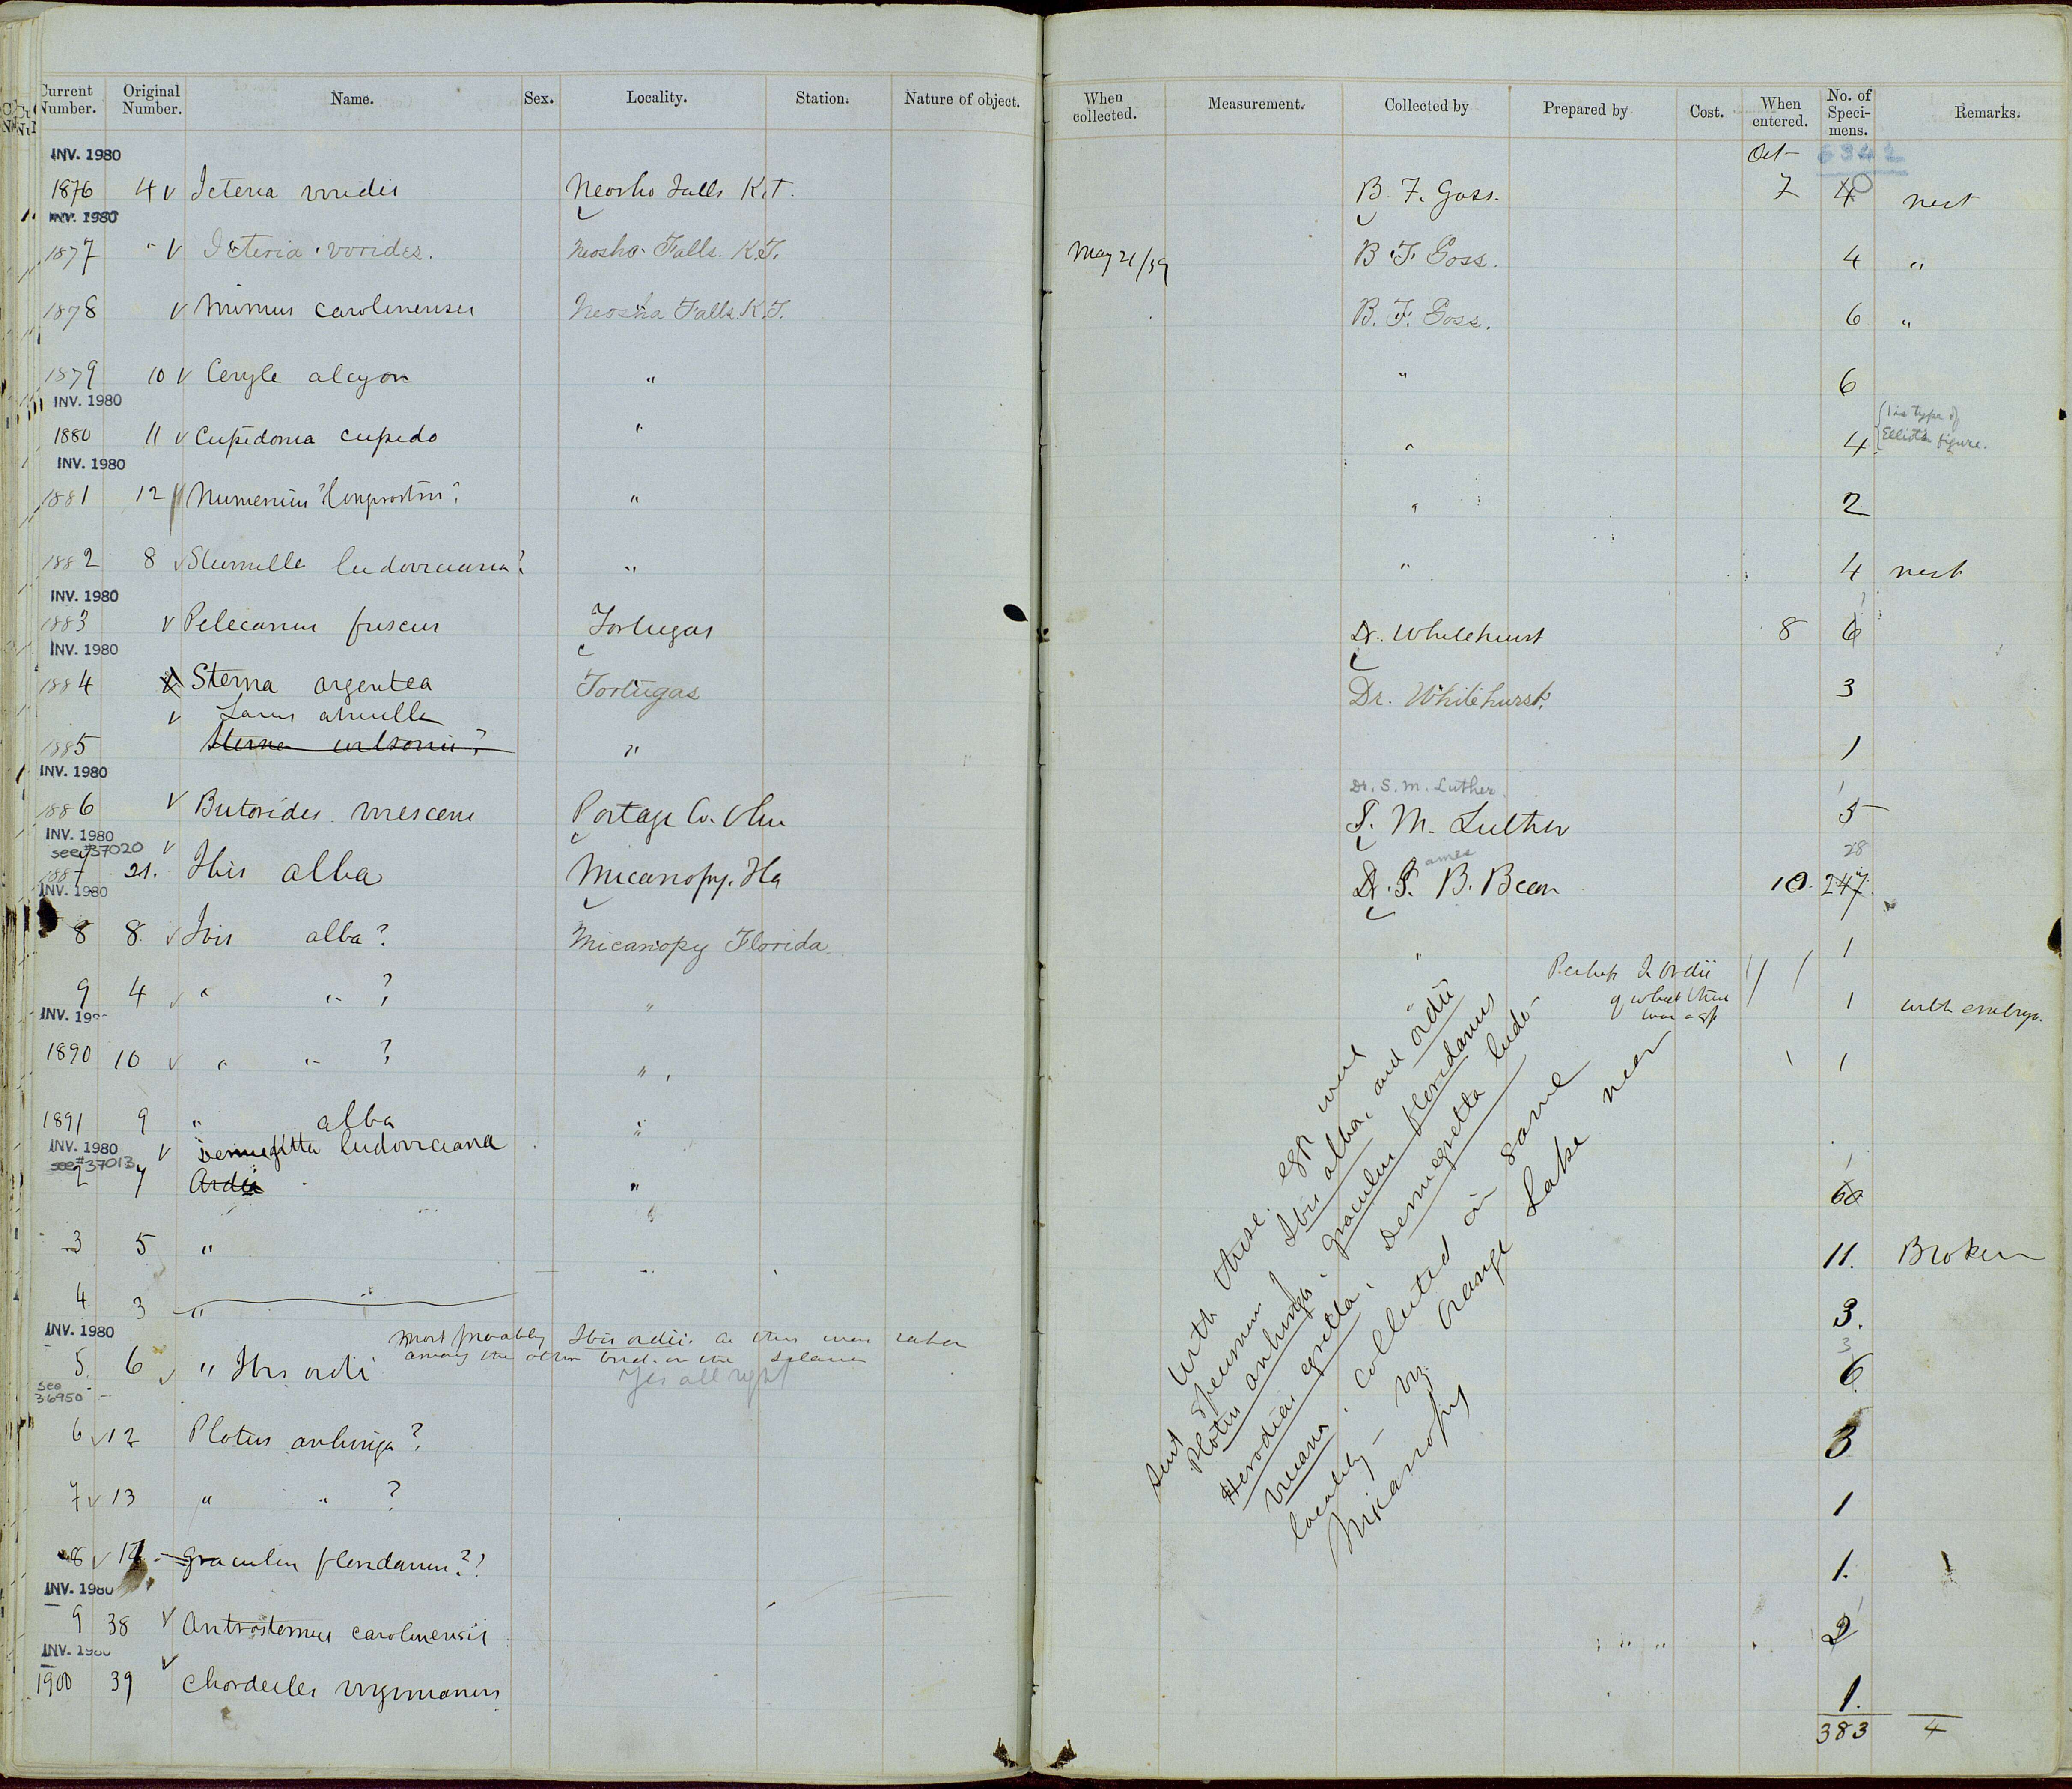 Current Number. Original Number. Name. Sex. Locality. Station. Nature of object. When collected. Measurement. Collected by Prepared by Cost. When entered. No. of Speci-mens. Remarks.
INV. 1980 Oct 6342
1876 4 v Icteria viridis Neosho Falls K.T. B. F. Goss. 7 4 nest
INV. 1980
1877 " v Icteria virides. Neosho Falls. K.T. May 21/59 B. F. Goss. 4 "
1878 v Mimus carolinensis Neosho Falls K.T. B. F. Goss. 6 "
1879 10 v Ceryle alcyon " " 6
INV. 1980
1880 11 v Cupidonia cupido " " 4 1 is type of Elliot's figure.
INV. 1980
1881 12 Numenius ? longirostris? " " 2
1882 8 v Sturnella ludoviciana? " " 4 nest
INV. 1980
1883 v Pelecanus fuscus Tortugas Dr. Whitehurst 8 6
INV. 1980
1884 Sterna argentea Tortugas Dr. Whitehurst. 3
v Larus atricilla
1885 Sterna wilsonii? " 1
INV. 1980
Dr. S. M. Luther.
1886 v Butorides virescens Portage Co. Ohio S. M. Luther 5
INV. 1980
see #37020
1887 21. Ibis alba Micanopy. Fla Dr. J. ames B. Bean 10. 247 28
INV. 1980
8 8 v Ibis alba? Micanopy Florida " 1
9 4 v " " ? " " Perhaps I. ordii 1 with embryo.
INV. 19
1890 10 v " " ? " 1
1891 9 " alba "
INV. 1980 v Demiegretta ludoviciana
see #37013
2 7 Ardea " 60
3 5 " 11. Broken
4 3 " 3.
INV. 1980
most probably Ibis ordii. as this was taken
among the other birds on the Island
5 6 v " Ibis ordi Yes all right 3 6
see 36950
6 v 12 Plotus anhinga? 3
7 v 13 " " ? 1
8 v 17 - Graculus floridanus?? 1.
INV. 1980
9 38 v Antrostomus carolinensis 2
INV. 1980
1900 39 v Chordeiles virginianus 1.
383 4
with these eggs were
sent specimens of Ibis alba, and ordii
Plotus anhinga, Graculus floridanus
Herodias egretta, Demiegretta ludo-
viciana. collected in same
locality - viz. Orange Lake near
Micanopy